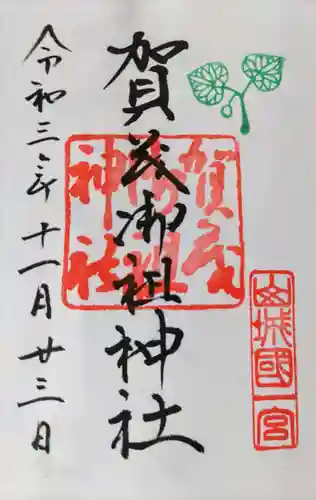 山城國一宮
賀茂御祖神社
賀茂御祖神社
令和三年十一月廿三日